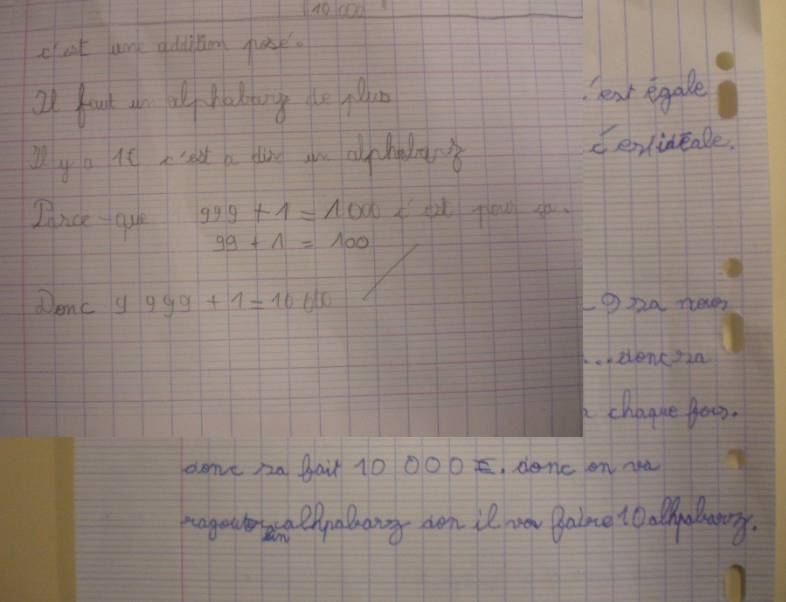 10 000
c'est une addition posé.
Il faut un alphabarz de plus
Il y a 1€ c'est a dire un alphabarz
Parce-que 999 + 1 = 1 000 c'est pour sa.
99 + 1 = 100
Donc 9 999 + 1 = 10 000
c'est égale
c'est idéale.
9 sa nous
...donc sa
chaque fois.
donc sa fait 10 000 €. donc on va
ragouter un alhpabarz don il va faire 10 alhpabarz.